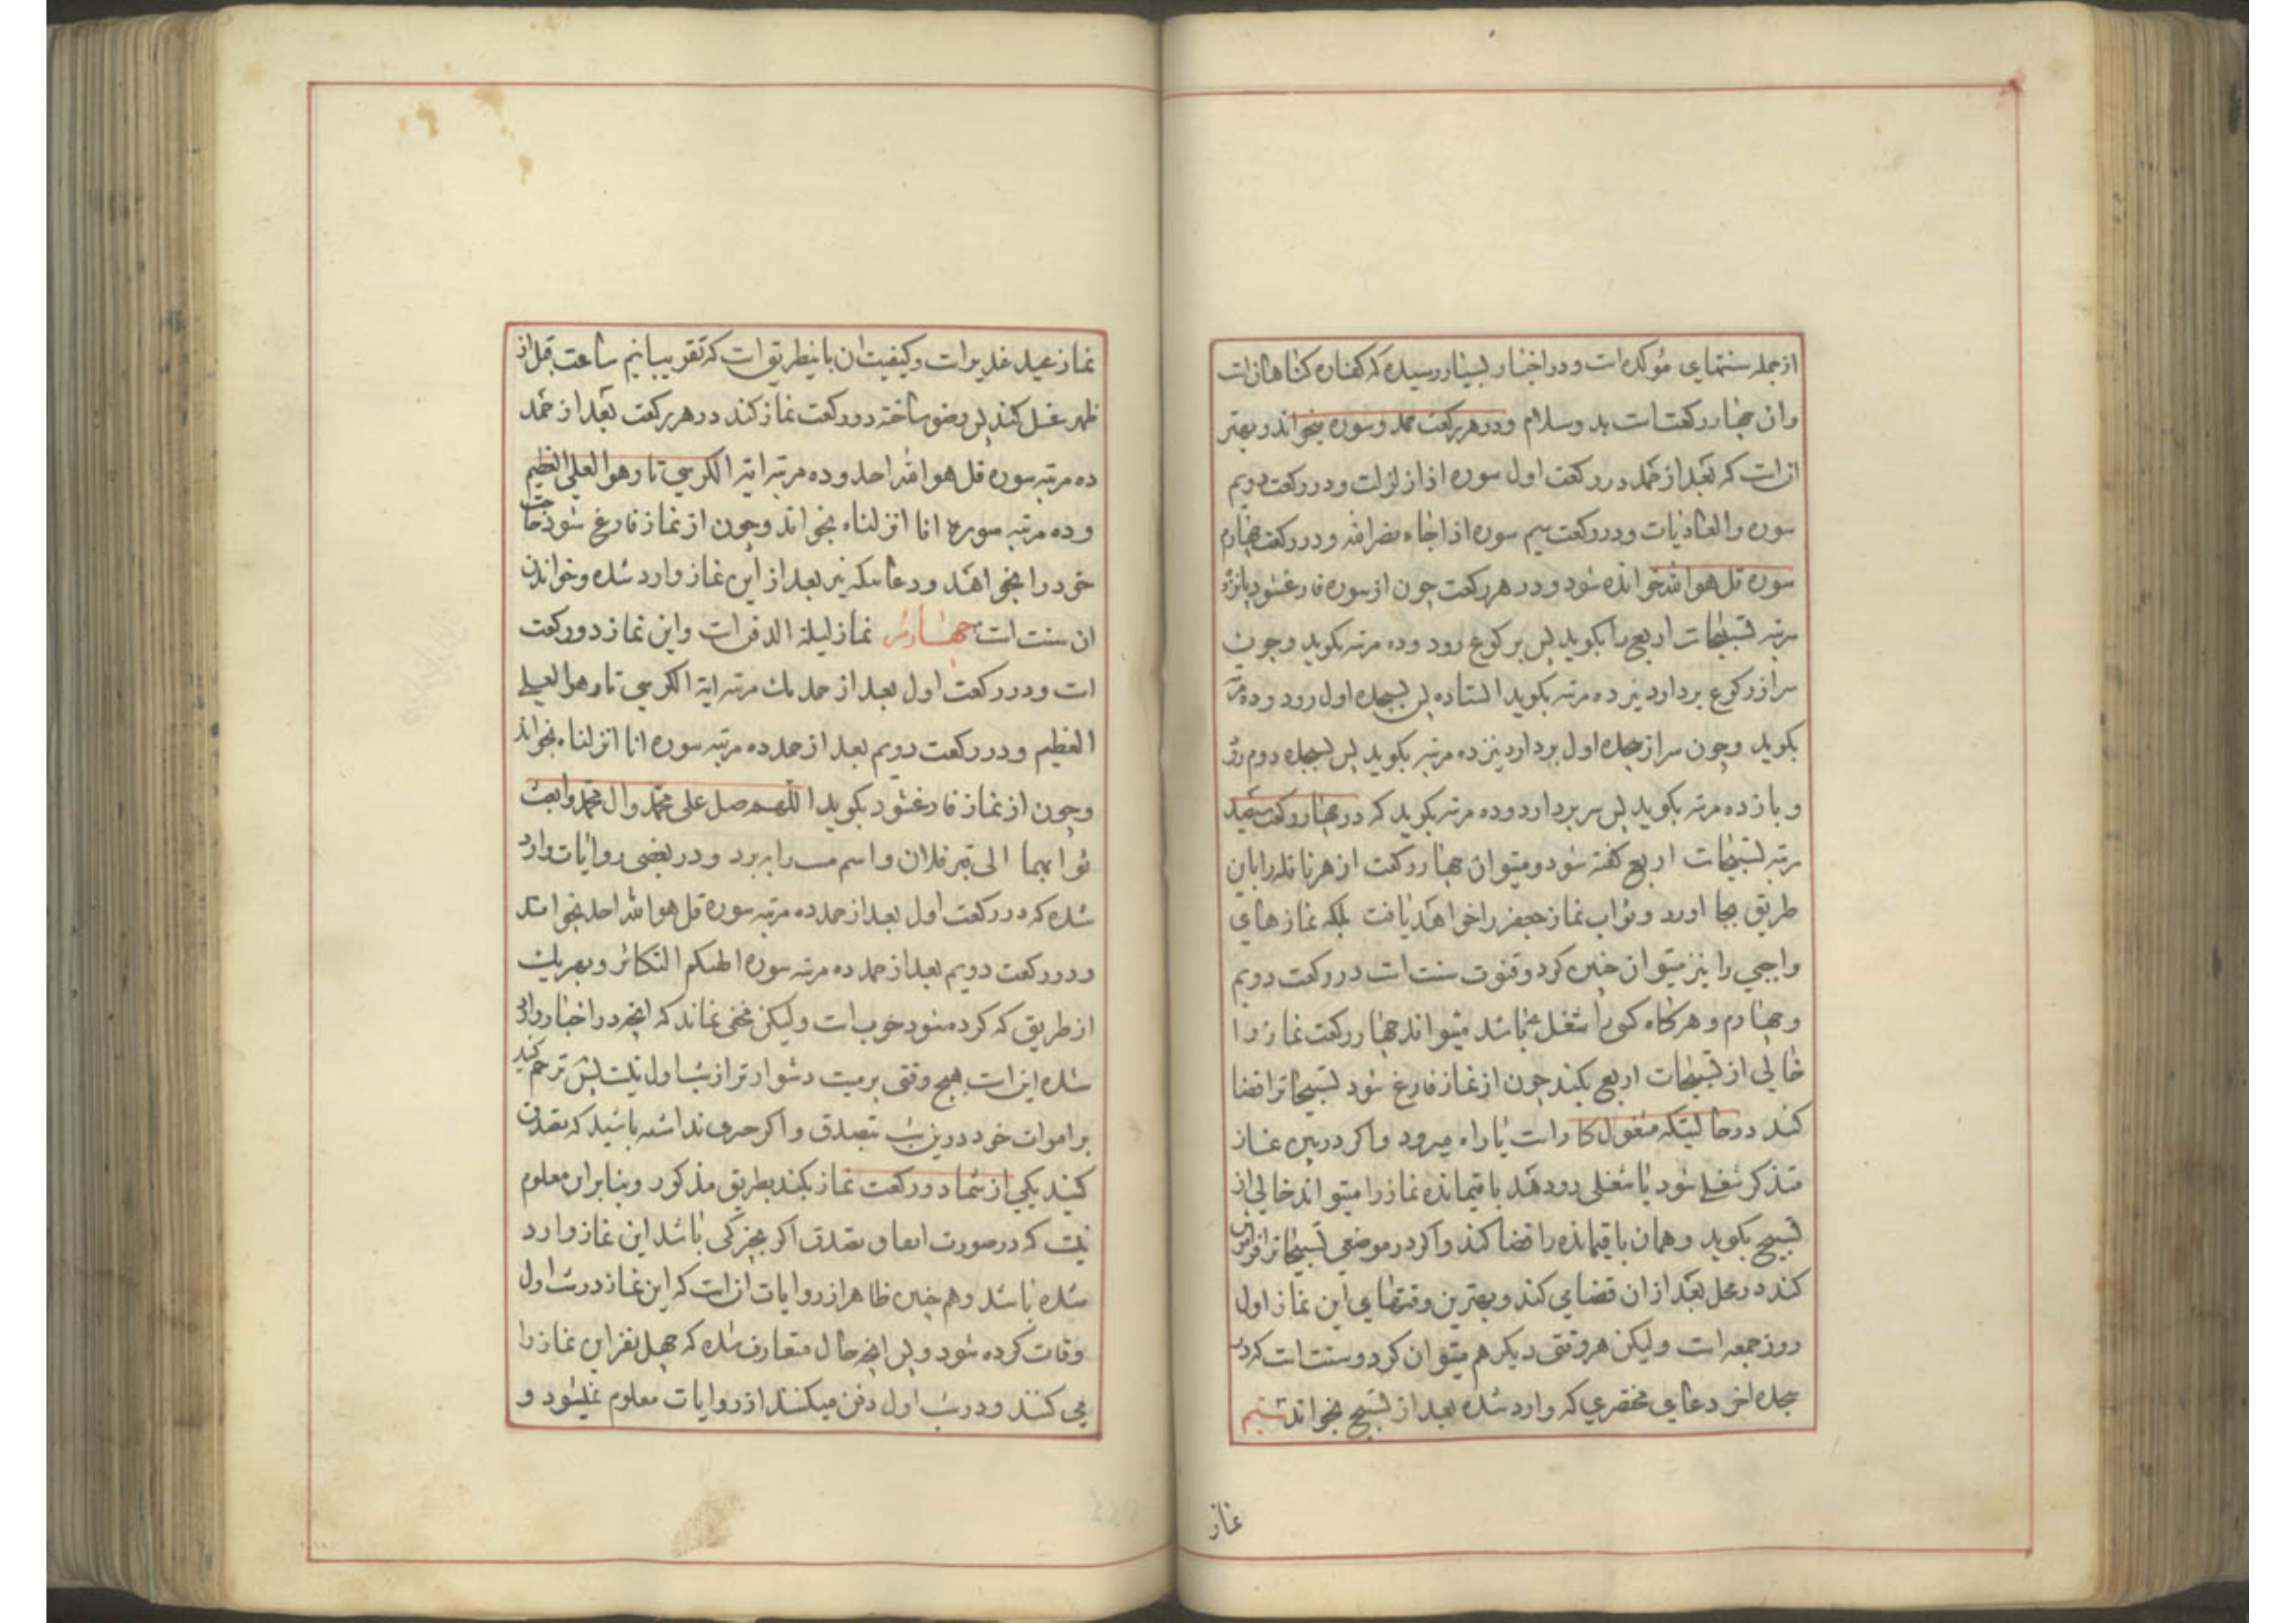 از جمله سنتهای مؤکده است و در اخبار بسیار رسیده که کفاره کناهان است
و ان چهار رکعت است بدو سلام و در هر رکعت حمد و سوره بخواند و بهتر
ان است که بعد از حمد در رکعت اول سوره اذا زلزلت و در رکعت دویم
سوره والعادیات و در رکعت سیم سوره اذا جاء نصر الله و در رکعت چهارم
سوره قل هو الله خوانده شود و در هر رکعت چون از سوره فارغ شود پانزده
مرتبه تسبیحات اربع را بکوید پس برکوع رود و ده مرتبه بکوید و چون
سر از رکوع بردارد نیز ده مرتبه بکوید ایستاده پس بسجده اول رود و ده مرتبه
بکوید و چون سر از سجده اول بردارد نیز ده مرتبه بکوید پس بسجده دوم رود
و باز ده مرتبه بکوید پس سر بردارد و ده مرتبه بکوید که در چهار رکعت سیصد
مرتبه تسبیحات اربع کفته شود و میتوان چهار رکعت از هر نافله را باین
طریق بجا اورد و ثواب نماز جعفر را خواهد یافت بلکه نمازهای
واجبی را نیز میتوان چنین کرد و قنوت سنت است در رکعت دویم
و چهارم و هرکاه کسی را شغلی باشد میتواند چهار رکعت نماز را
خالی از تسبیحات اربع بکند چون از نماز فارغ شود تسبیحاترا قضا
کند در حالیتکه مشغول کار است یا راه میرود و اکر در بین نماز
متذکر شغلی شود یا شغلی رو دهد باقیمانده نماز را میتواند خالی از
تسبیح بکوید و همان باقیمانده را قضا کند و اکر در موضعی تسبیحاترا فراموش
کند در محل بعد از ان قضا می کند و بهترین وقتهای این نماز اول
روز جمعه است و لیکن هر وقتی دیکر هم میتوان کرد و سنت است که در
سجده اخر دعای مختصری که وارد شده بعد از تسبیح بخواند سیم
نماز
نماز عید غدیر است و کیفیت ان باینطریق است که تقریبا نیم ساعت قبل از
ظهر غسل کند پس وضو ساخته دو رکعت نماز کند در هر رکعت بعد از حمد
ده مرتبه سوره قل هو الله احد و ده مرتبه ایة الکرسی تا و هو العلی العظیم
و ده مرتبه سوره انا انزلناه بخواند و چون از نماز فارغ شود حاجت
خود را بخواهد و دعائیکه نیز بعد از این نماز وارد شده و خواندن
ان سنت است چهارم نماز لیلة الدفن است و این نماز دو رکعت
است و در رکعت اول بعد از حمد یک مرتبه ایة الکرسی تا و هو العلی
العظیم و در رکعت دویم بعد از حمد ده مرتبه سوره انا انزلناه بخواند
و چون از نماز فارغ شود بکوید اللهم صل علی محمد و ال محمد و ابعث
ثوابهما الی قبر فلان و اسم میت را به برد و در بعضی روایات وارد
شده که در رکعت اول بعد از حمد ده مرتبه سوره قل هو الله احد بخواند
و در رکعت دویم بعد از حمد ده مرتبه سوره الهیکم التکاثر و بهر یک
از طریق که کرده شود خوب است و لیکن مخفی نماند که انچه در اخبار وارد
شده این است هیچ وقتی بر میت دشوار تر از شب اول نیست پس ترحم کنید
بر اموات خود در این شب بتصدق و اکر چیزی نداشته باشید که تصدق
کنید یکی از شما دو رکعت نماز بکند بطریق مذکور و بنابراین معلوم
نیست که در صورت تصدق اکر باشد این نماز وارد
شده باشد و هم چنین ظاهر از روایات ان است که این نماز در شب اول
وفات کرده شود و پس انچه حال متعارف شده که چهل نفر این نماز را
می کنند و در شب اول دفن میکنند از روایات معلوم نمیشود و